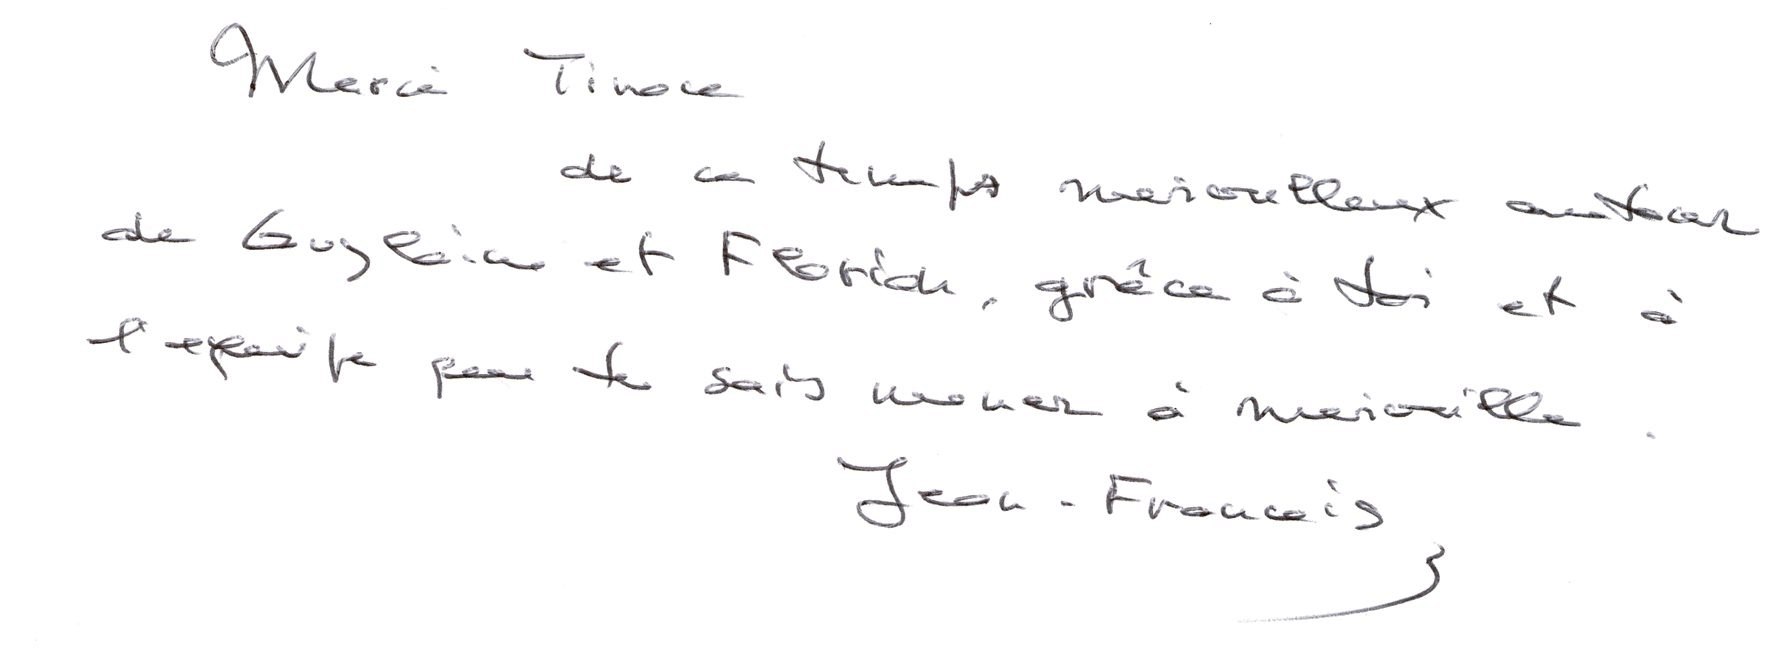 Merci Tinoce
de ce temps merveilleux autour
de Guylaine et Florida, grâce à toi et à
l'équipe que tu sais mener à merveille.
Jean-François